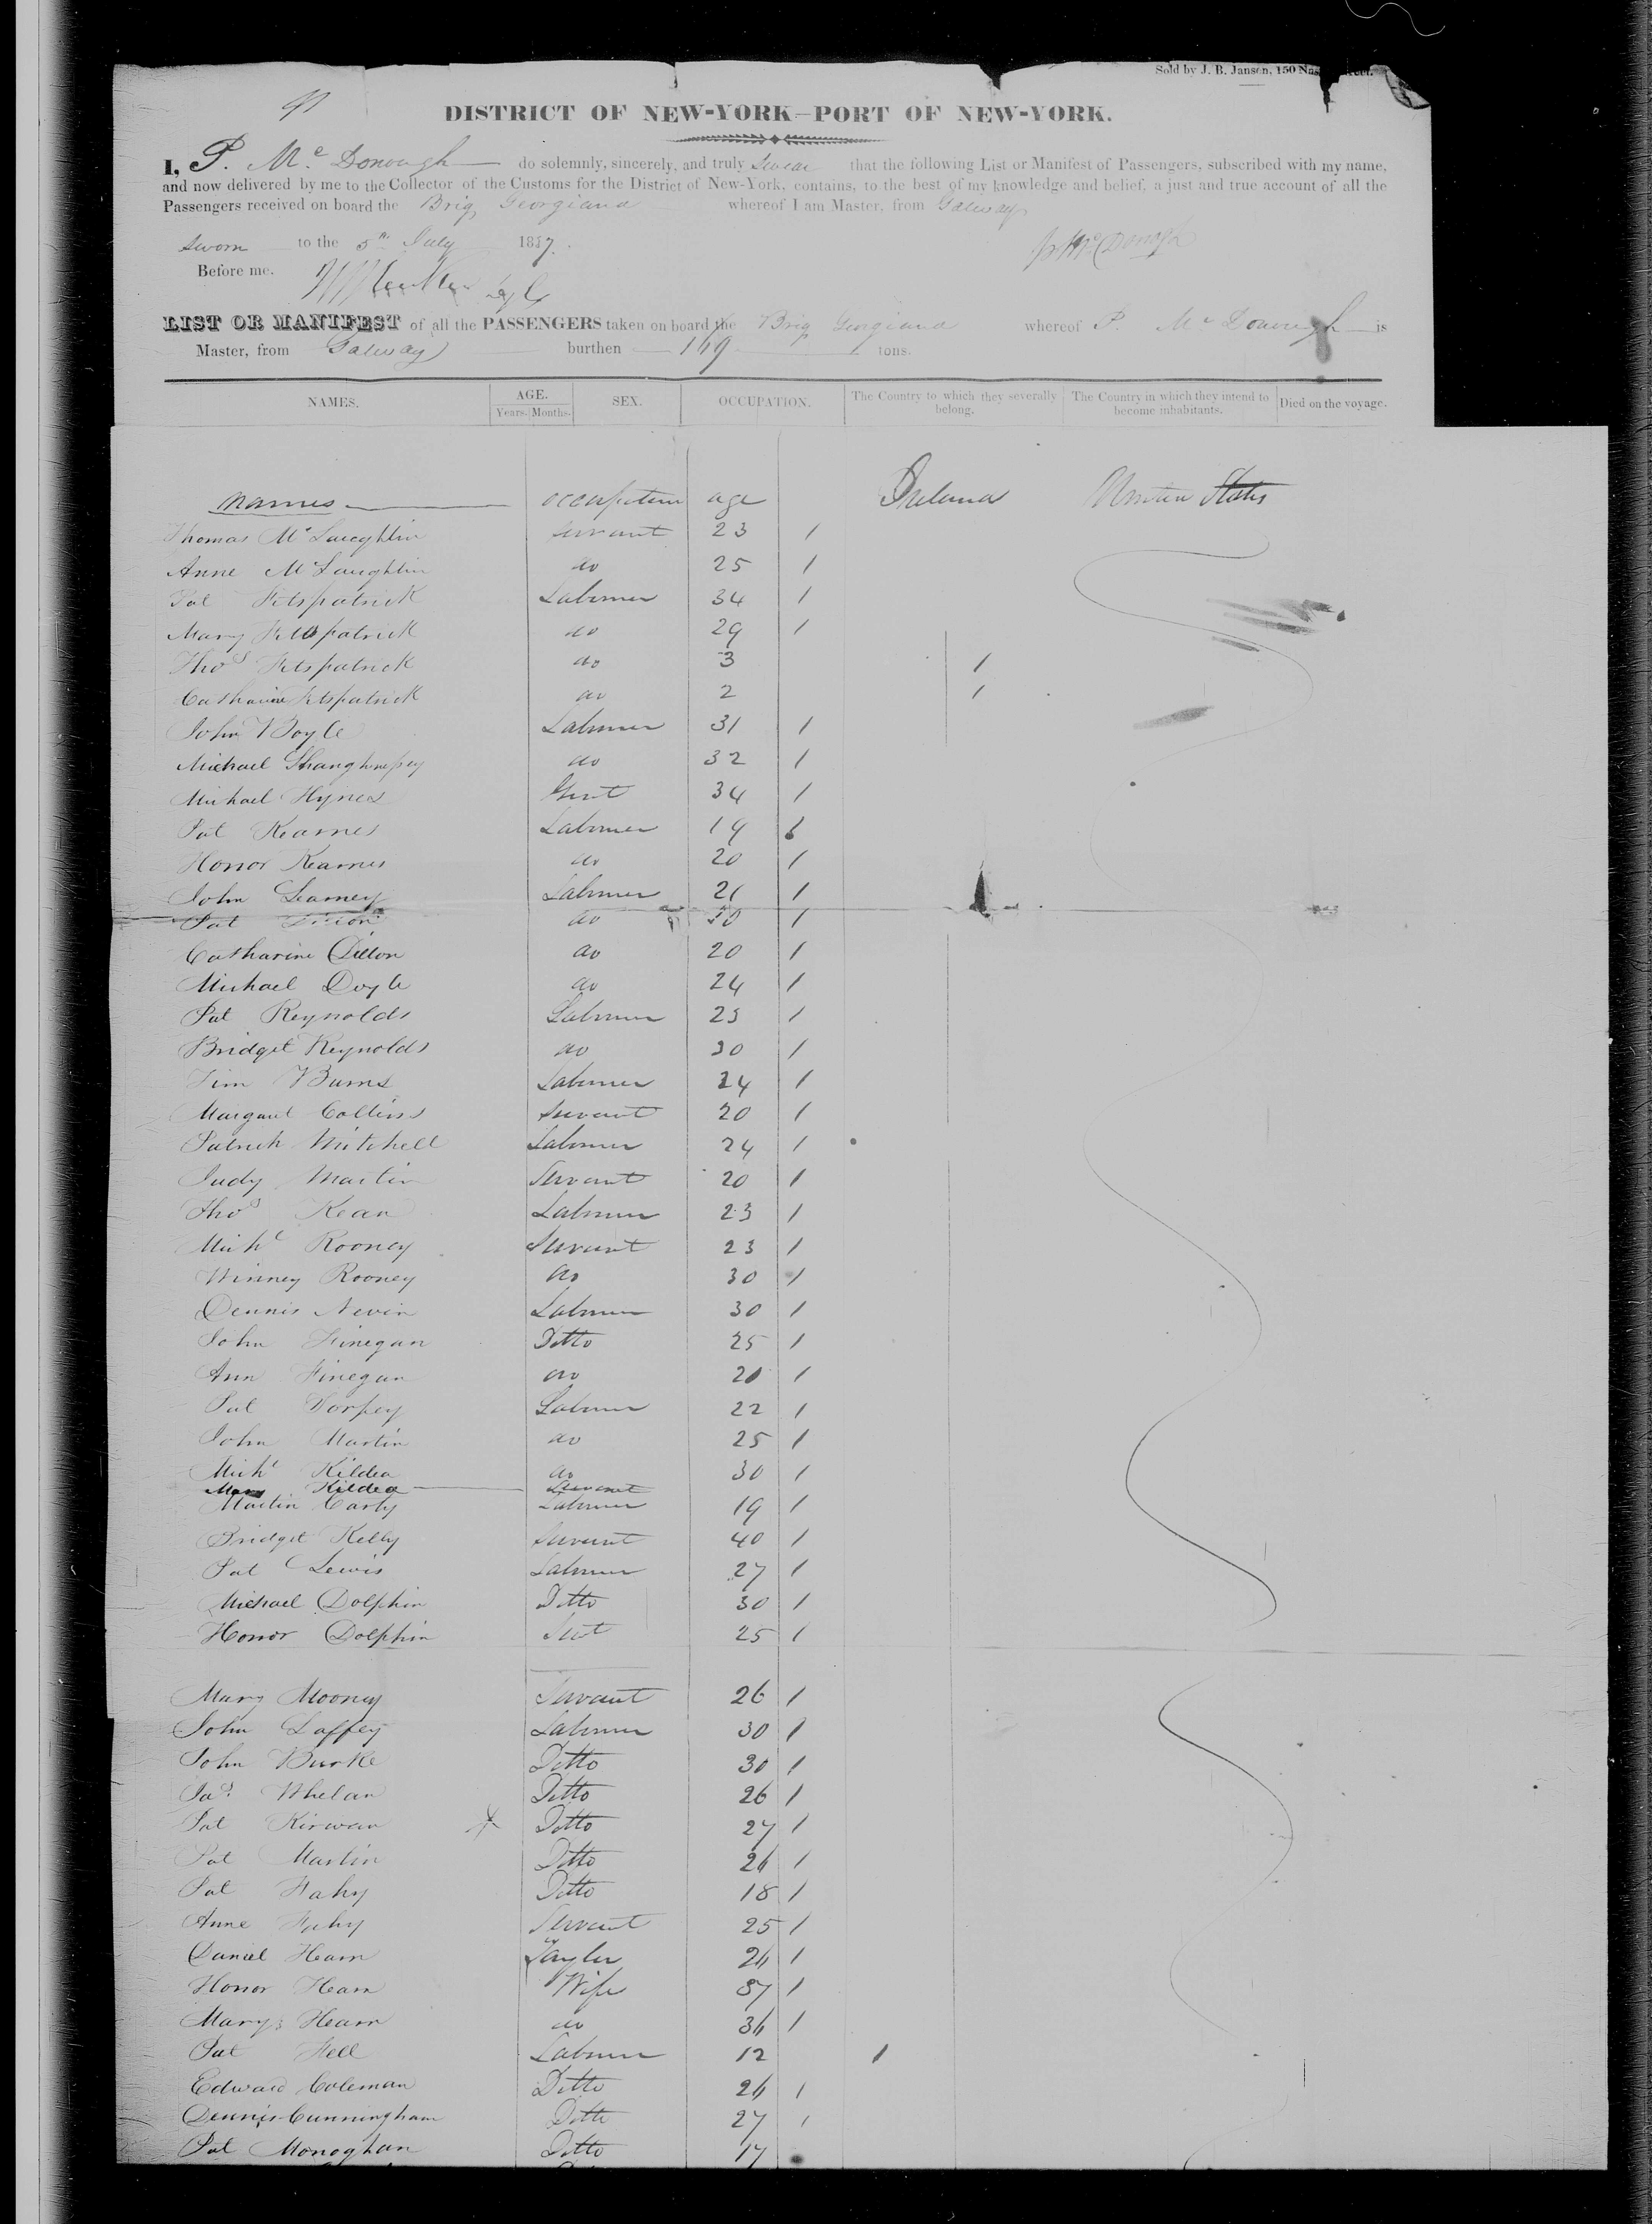 Sold by J. B. Jansen, 150
91
DISTRICT OF NEW-YORK—PORT OF NEW-YORK.
I, P. Mc Donough do solemnly, sincerely, and truly Swear that the following List or Manifest of Passengers, subscribed with my name,
and now delivered by me to the Collector of the Customs for the District of New-York, contains, to the best of my knowledge and belief, a just and true account of all the
Passengers received on board the Brig Georgiana whereof I am Master, from Galway
Sworn to the 5th July 1837.
P Mc Donogh
Before me.
LIST OR MANIFEST of all the PASSENGERS taken on board the Brig Georgiana whereof P. Mc Donough is
Master, from Galway burthen 149 tons.
NAMES. AGE. Years. Months. SEX. OCCUPATION. The Country to which they severally belong. The Country in which they intend to become inhabitants. Died on the voyage.
names occupation age Ireland United States
Thomas McLaughlin servant 23 1
Anne McLaughlin do 25 1
Pat Fitspatrick Labourer 34 1
Mary Fitspatrick do 29 1
Thos Fitspatrick do 3 1
Catharine Fitspatrick do 2 1
John Boyle Labourer 31 1
Michael Shanghnessy do 32 1
Michael Hynes Servt 34 1
Pat Kearnes Labourer 19 1
Honor Kearnes do 20 1
John Leamey Labourer 21 1
Pat do 1
Catharine Dillon do 20 1
Michael Doyle do 24 1
Pat Reynolds Labourer 23 1
Bridget Reynolds do 30 1
Tim Burns Labourer 24 1
Margaret Collins servant 20 1
Patrick Mitchell Labourer 24 1
Judy Martin Servant 20 1
Thos Kean Labourer 23 1
Michl Rooney Servant 23 1
Winney Rooney do 30 1
Dennis Nevin Labourer 30 1
John Finegan Ditto 25 1
Ann Finegan do 20 1
Pat Dorsey Labourer 22 1
John Martin do 25 1
Michl Kildea do 30 1
Mary Kildea Servant
Martin Carty Labourer 19 1
Bridget Kelly servant 40 1
Pat Lewis Labourer 27 1
Michael Dolphin Ditto 30 1
Honor Dolphin Servt 25 1
Mary Mooney Servant 26 1
John Laffey Labourer 30 1
John Burke Ditto 30 1
Jas. Whelan Ditto 26 1
Pat Kirwan Ditto 27 1
Pat Martin Ditto 26 1
Pat Fahy Ditto 18 1
Anne Fahy Servant 25 1
Daniel Hearn Tayler 26 1
Honor Hearn Wife 37 1
Mary Hearn do 36 1
Pat Fell Labourer 12 1
Edward Coleman Ditto 26 1
Dennis Cunningham Ditto 27 1
Pat Monoghan Ditto 17